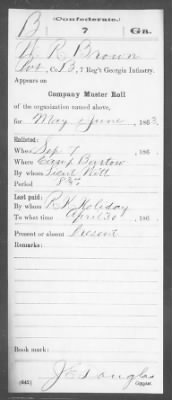 (Confederate.)
B 7 Ga.
R. Brown
Pvt, Co. B, 7 Reg't Georgia Infantry.
Appears on
Company Muster Roll
of the organization named above,
for May & June, 1863.
Enlisted:
When Sep 7, 186
Where Camp Bartow
By whom Lieut
Period
Last paid:
By whom R. K. Holiday
To what time April 30, 186
Present or absent Present
Remarks:
Book mark:
J E Douglas
(642) Copyist.